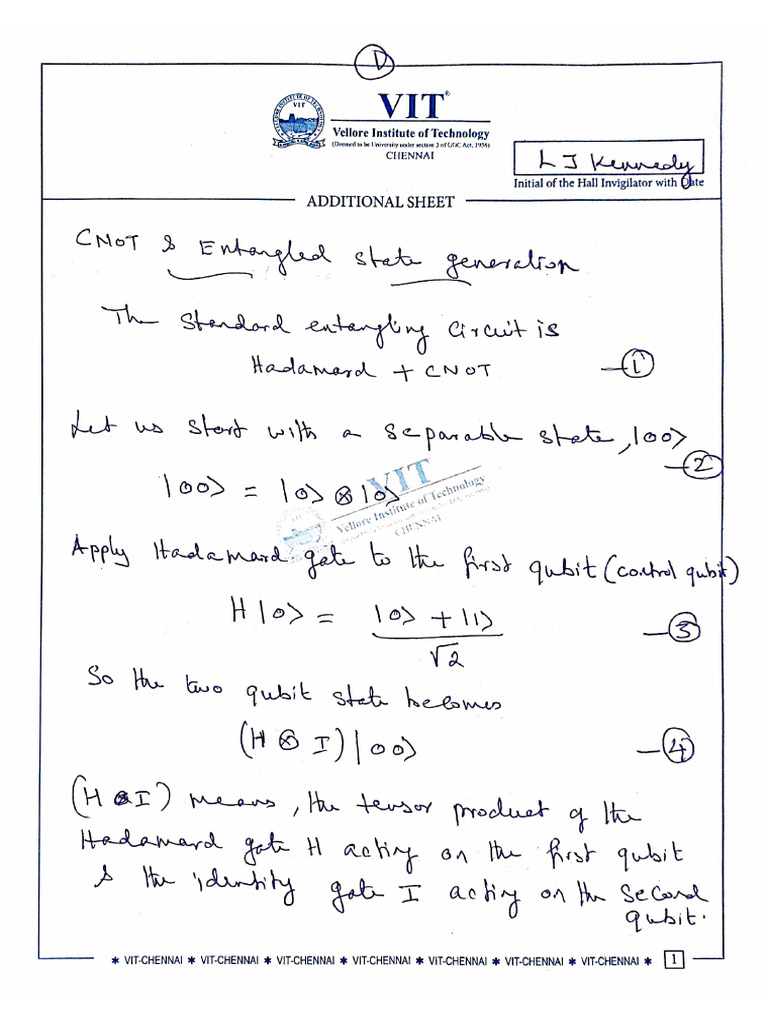 D
VIT®
Vellore Institute of Technology
(Deemed to be University under section 3 of UGC Act, 1956)
CHENNAI
L J Kennedy
Initial of the Hall Invigilator with Date
ADDITIONAL SHEET
CNOT & Entangled state generation
The standard entangling circuit is
Hadamard + CNOT —①
Let us start with a separable state, |00⟩
—②
|00⟩ = |0⟩ ⊗ |0⟩
VIT
Vellore Institute of Technology
CHENNAI
Apply Hadamard gate to the first qubit (control qubit)
H|0⟩ = |0⟩ + |1⟩ —③
√2
So the two qubit state becomes
(H ⊗ I)|00⟩ —④
(H ⊗ I) means, the tensor product of the
Hadamard gate H acting on the first qubit
& the identity gate I acting on the second
qubit.
* VIT-CHENNAI * VIT-CHENNAI * VIT-CHENNAI * VIT-CHENNAI * VIT-CHENNAI * VIT-CHENNAI * VIT-CHENNAI * 1